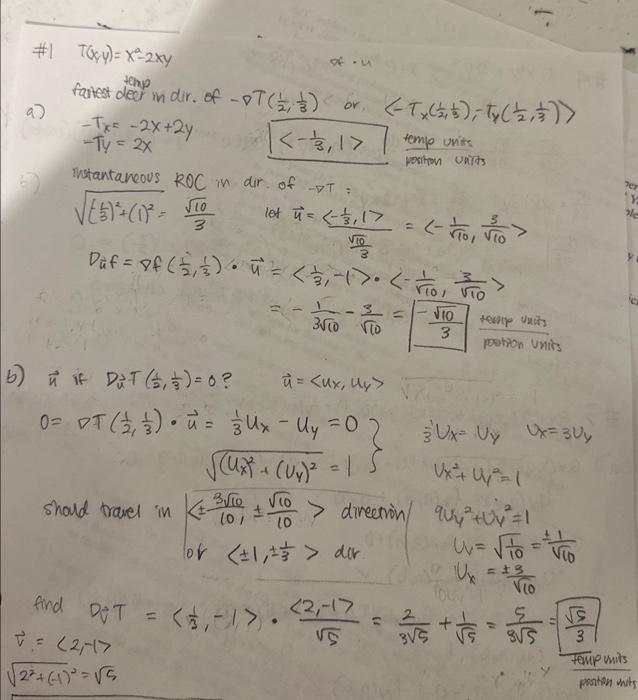 #1 T(x,y)= x²-2xy
∇f · u
fastest temp decr in dir. of -∇T(½,⅓) or <-Tx(½,⅓),-Ty(½,⅓)>
a) -Tx= -2x+2y
-Ty = 2x
<-⅓,1> temp units / position units
instantaneous ROC in dir. of -∇T :
√((-⅓)²+(1)²) = √10/3 let u⃗ = <-⅓,1> / (√10/3) = <-1/√10, 3/√10>
Du⃗f = ∇f(½,⅓) · u⃗ = <⅓,-1> · <-1/√10, 3/√10>
= -1/(3√10) - 3/√10 = -√10/3 temp units / position units
b) u⃗ if Du⃗T(½,⅓)=0? u⃗ = <ux, uy>
0= ∇T(½,⅓) · u⃗ = ⅓ux - uy = 0 ⅓ux = uy ux=3uy
√((ux)² + (uy)²) = 1 ux²+uy²=1
should travel in <±3√10/10, ±√10/10> direction 9uy²+uy²=1
or <±1,±⅓> dir uy = √(1/10) = ±1/√10
ux = ±3/√10
find Dv⃗T = <⅓,-1> · <2,-1>/√5 = 2/(3√5) + 1/√5 = 5/(3√5) = √5/3
v⃗ = <2,-1> temp units / position units
√(2²+(-1)²) = √5